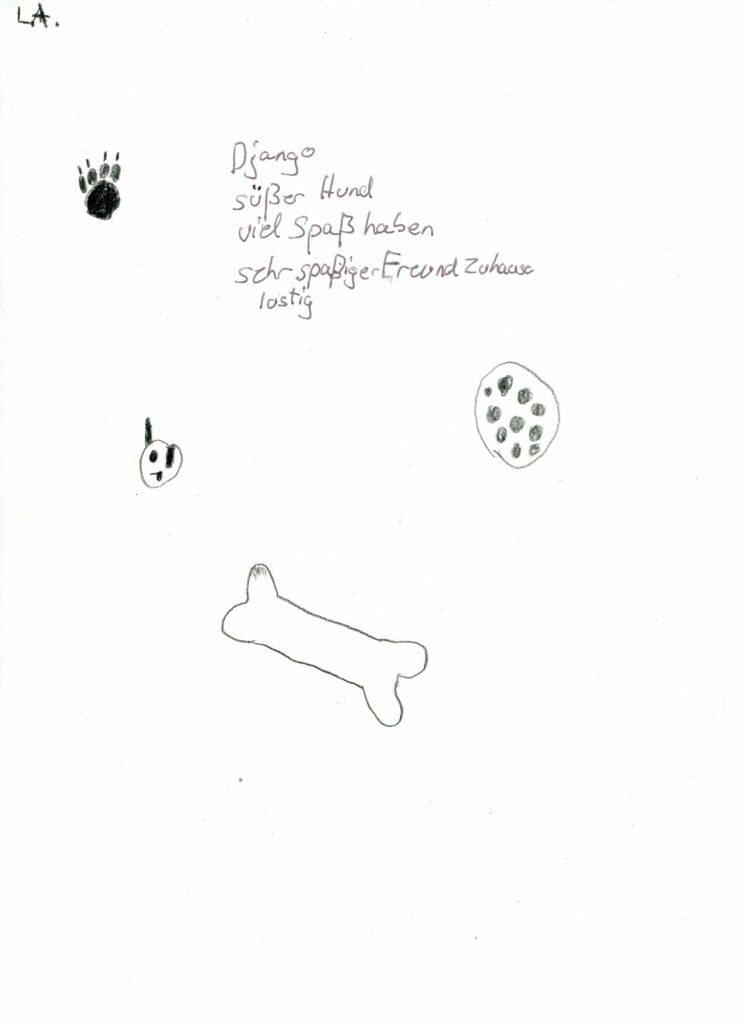 LA.
Django
süßer Hund
viel Spaß haben
sehr spaßiger Freund Zuhause
lustig